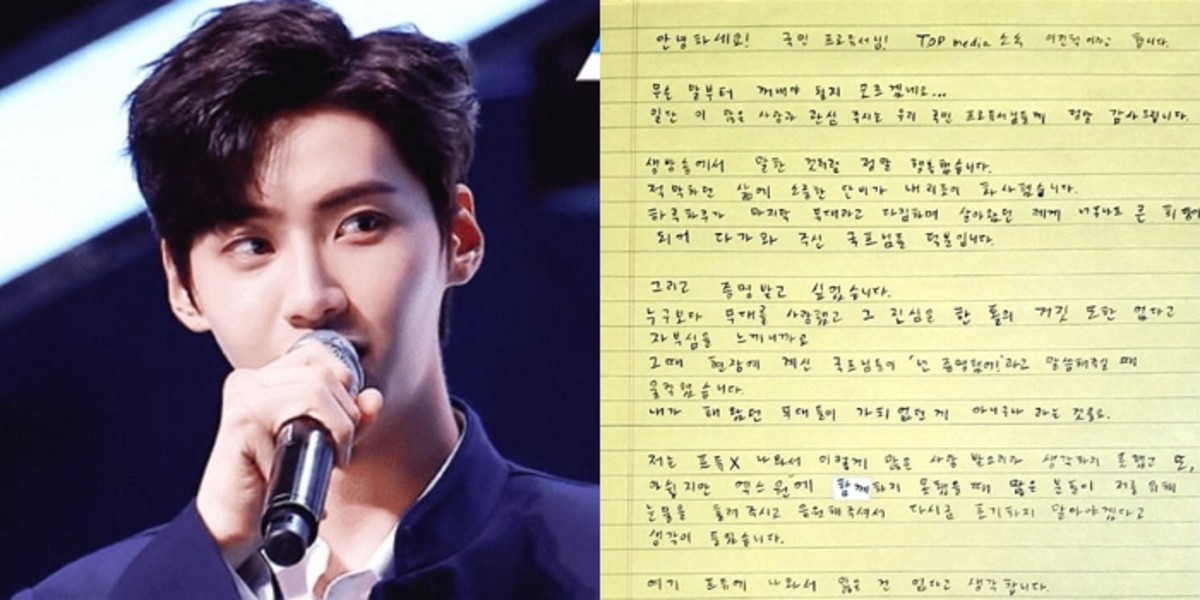 안녕하세요! 국민 프로듀서님! TOP media 소속 이진혁이라고 합니다.
무슨 말부터 꺼내야 될지 모르겠네요...
일단 이 많은 사랑과 관심 주시는 우리 국민 프로듀서님들께 정말 감사드립니다.
생방송에서 말한 것처럼 정말 행복했습니다.
적막하던 삶에 소중한 단비가 내리듯이 화사했습니다.
하루하루가 마지막 무대라고 다짐하며 살아왔던 제게 너무나도 큰 희망이
되어 다가와 주신 국프님들 덕분입니다.
그리고 증명받고 싶었습니다.
누구보다 무대를 사랑했고 그 진심은 한 톨의 거짓 또한 없다고
자부심을 느끼니까요
그때 현장에 계신 국프님들이 '넌 증명했어!'라고 말씀해주실 때
울컥했습니다.
내가 해왔던 무대들이 가치없던게 아니구나 라는 것을요.
저는 프듀X 나와서 이렇게 많은 사랑 받으리라 생각하지 못했고 또,
아쉽지만 엑스원에 함께하지 못했을 때 많은 분들이 저를 위해
눈물을 흘려주시고 응원해주셔서 다시금 포기하지 말아야겠다고
생각이 들었습니다.
여기 프듀에 나와서 잃은 건 없다고 생각합니다.